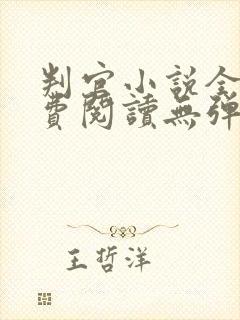 判官小說全
費閱讀無彈
王哲洋